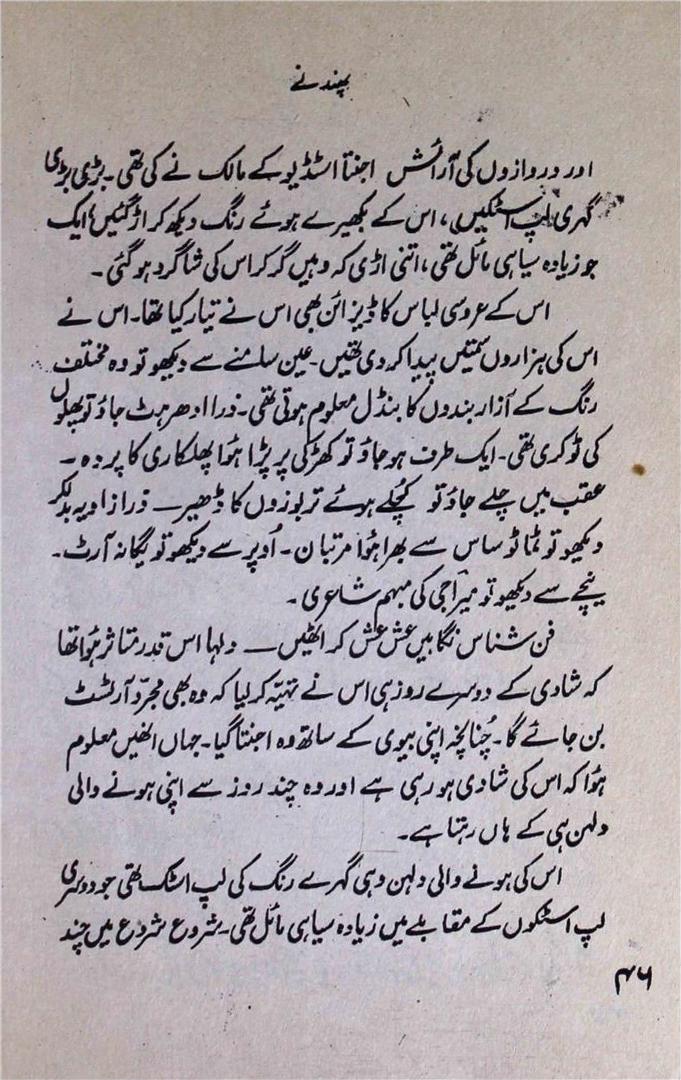 پھندنے
اور دروازوں کی آرائش اجنتا اسٹڈیو کے مالک نے کی تھی۔ بڑی بڑی
گہری لپ اسٹکیں، اس کے بکھیرے ہوئے رنگ دیکھ کر اڑ گئیں، ایک
جو زیادہ سیاہی مائل تھی، اتنی اڑی کہ وہیں گر کر اس کی شاگرد ہو گئی۔
اس کے عروسی لباس کا ڈیزائن بھی اس نے تیار کیا تھا۔ اس نے
اس کی ہزاروں سمتیں پیدا کر دی تھیں۔ عین سامنے سے دیکھو تو وہ مختلف
رنگ کے آزار بندوں کا بنڈل معلوم ہوتی تھی۔ ذرا ادھر ہٹ جاؤ تو پھلوں
کی ٹوکری تھی۔ ایک طرف ہو جاؤ تو کھڑکی پر پڑا ہوا پھلکاری کا پردہ۔
عقب میں چلے جاؤ تو کچلے ہوئے تربوزوں کا ڈھیر — ذرا زاویہ بدل کر
دیکھو تو ٹماٹو ساس سے بھرا ہوا مرتبان۔ اُوپر سے دیکھو تو یگانہ آرٹ۔
نیچے سے دیکھو تو میراجی کی مبہم شاعری۔
فن شناس نگاہیں عش عش کر اٹھیں — دلہا اس قدر متاثر ہوا تھا
کہ شادی کے دوسرے روز ہی اس نے تہیّہ کر لیا کہ وہ بھی مجرّد آرٹسٹ
بن جائے گا۔ چنانچہ اپنی بیوی کے ساتھ وہ اجنتا گیا۔ جہاں انھیں معلوم
ہوا کہ اس کی شادی ہو رہی ہے اور وہ چند روز سے اپنی ہونے والی
دلہن ہی کے ہاں رہتا ہے۔
اس کی ہونے والی دلہن وہی گہرے رنگ کی لپ اسٹک تھی جو دوسری
لپ اسٹکوں کے مقابلے میں زیادہ سیاہی مائل تھی۔ شروع شروع میں چند
۴۶